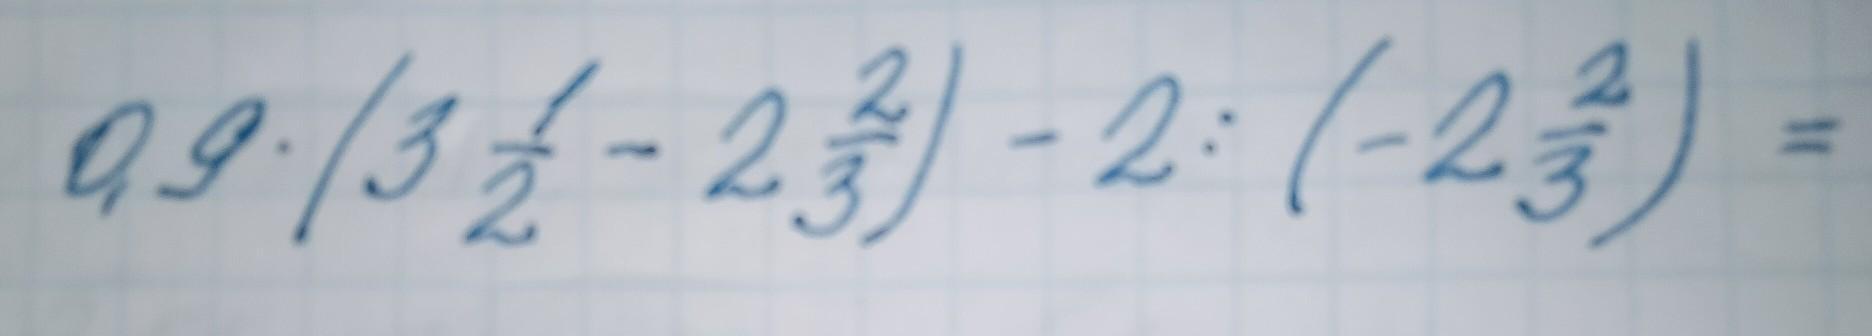 0,9·(3 1/2 - 2 2/3) - 2 : (-2 2/3) =